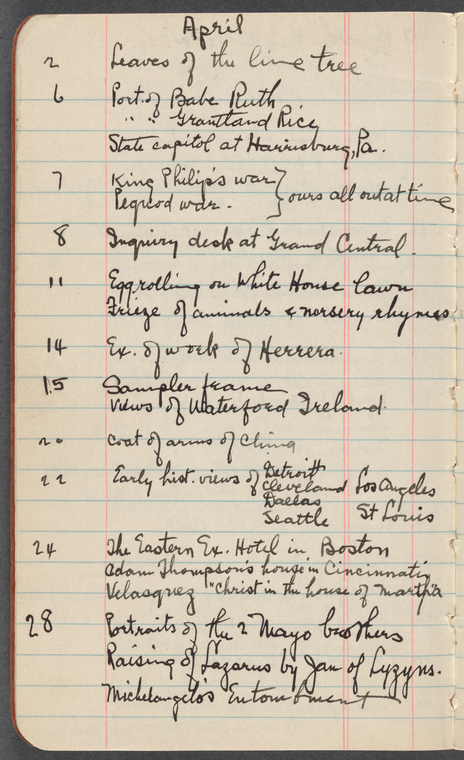 April
2 Leaves of the lime tree
6 Port. of Babe Ruth
" " Grantland Rice
State capitol at Harrisburg, Pa.
7 King Philip's war } ours all out at time
Pequod war.
8 Inquiry desk at Grand Central.
11 Egg rolling on White House lawn
Frieze of animals & nursery rhymes
14 Ex. of work of Herrera.
15 Sampler frame
Views of Waterford Ireland.
20 coat of arms of China
22 Early hist. views of Detroit Los Angeles
Cleveland St Louis
Dallas
Seattle
24 The Eastern Ex. Hotel in Boston
Adam Thompson's house in Cincinnati
Velasquez "Christ in the house of Martha
28 Portraits of the 2 Mayo brothers
Raising of Lazarus by Jan of Lyzyns.
Michelangelo's Entombment